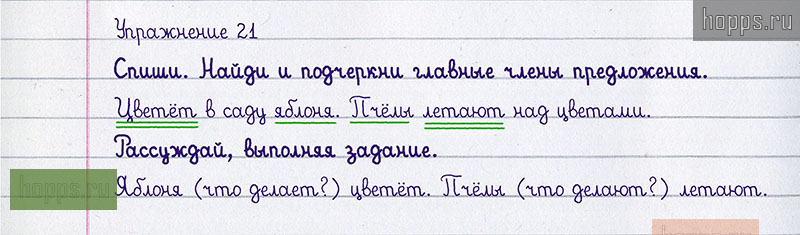 hopps.ru
Упражнение 21
Спиши. Найди и подчеркни главные члены предложения.
Цветёт в саду яблоня. Пчёлы летают над цветами.
Рассуждай, выполняя задание.
hopps.ru
Яблоня (что делает?) цветёт. Пчёлы (что делают?) летают.